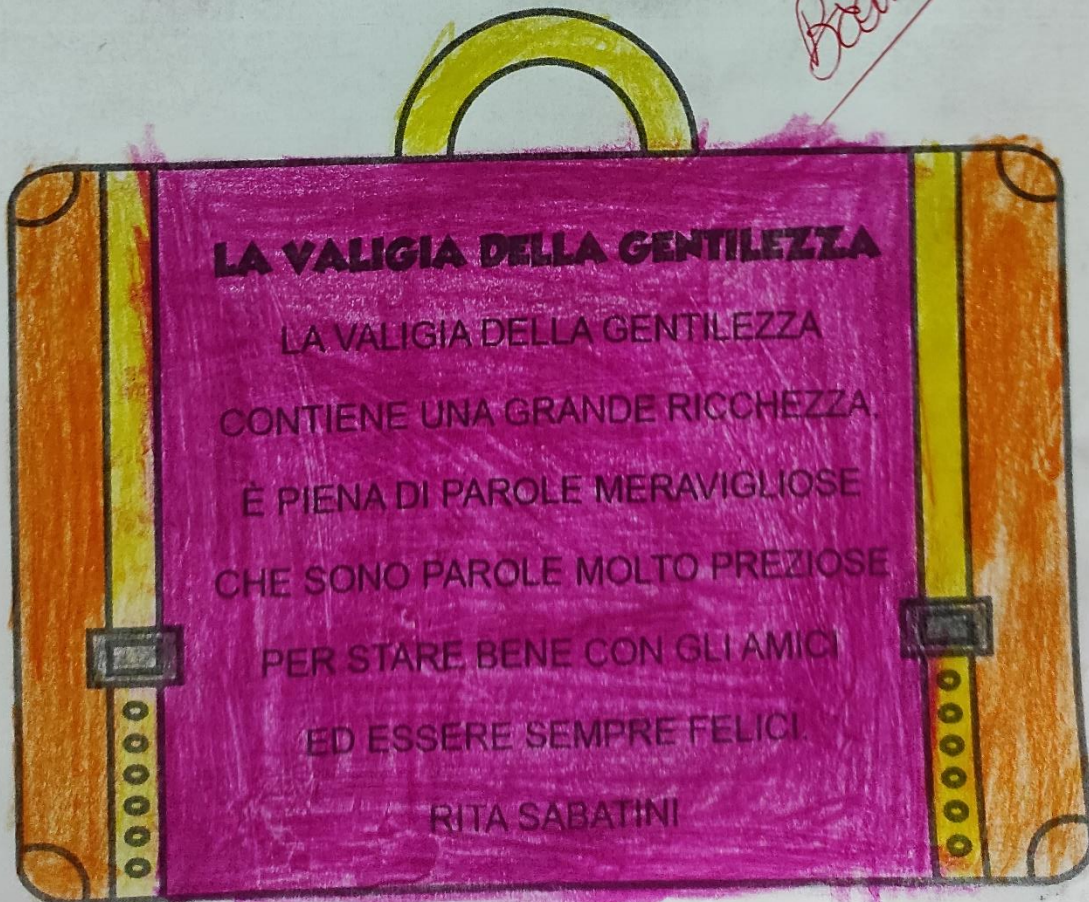 LA VALIGIA DELLA GENTILEZZA
LA VALIGIA DELLA GENTILEZZA
CONTIENE UNA GRANDE RICCHEZZA.
È PIENA DI PAROLE MERAVIGLIOSE
CHE SONO PAROLE MOLTO PREZIOSE
PER STARE BENE CON GLI AMICI
ED ESSERE SEMPRE FELICI.
RITA SABATINI